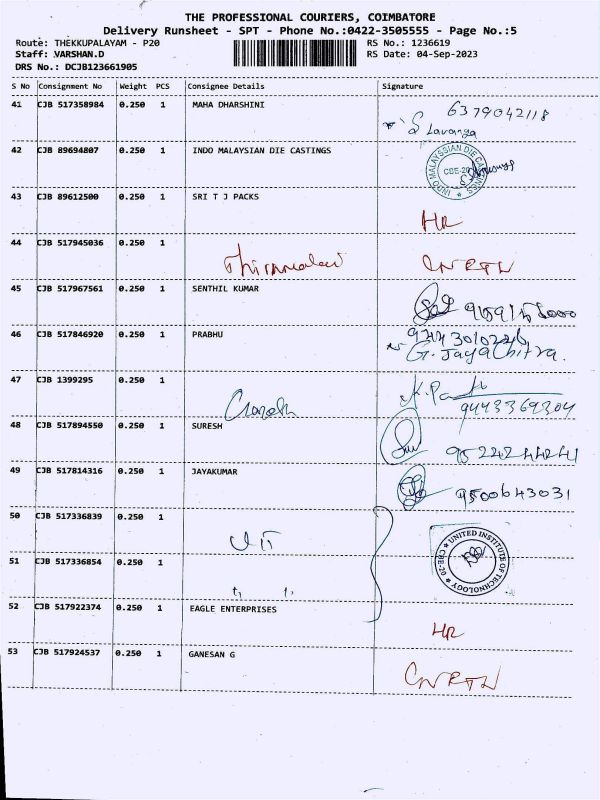 THE PROFESSIONAL COURIERS, COIMBATORE
Delivery Runsheet - SPT - Phone No.:0422-3505555 - Page No.:5
Route: THEKKUPALAYAM - P20
RS No.: 1236619
Staff: VARSHAN.D
RS Date: 04-Sep-2023
DRS No.: DCJB123661905
S No Consignment No Weight PCS Consignee Details Signature
41 CJB 517358984 0.250 1 MAHA DHARSHINI 6379042118
S Lavanya
42 CJB 89694807 0.250 1 INDO MALAYSIAN DIE CASTINGS
INDO MALAYSSIAN DIE CASTINGS
CBE-20
43 CJB 89612500 0.250 1 SRI T J PACKS
HR
44 CJB 517945036 0.250 1
Thirumalai CNRTN
45 CJB 517967561 0.250 1 SENTHIL KUMAR
46 CJB 517846920 0.250 1 PRABHU
G. Jaya Chitra.
47 CJB 1399295 0.250 1
Ganesh
9443369304
48 CJB 517894550 0.250 1 SURESH
49 CJB 517814316 0.250 1 JAYAKUMAR
9500643031
50 CJB 517336839 0.250 1
UIT
UNITED INSTITUTE OF TECHNOLOGY
CBE-20
51 CJB 517336854 0.250 1
52 CJB 517922374 0.250 1 EAGLE ENTERPRISES
HR
53 CJB 517924537 0.250 1 GANESAN G
CNRTN